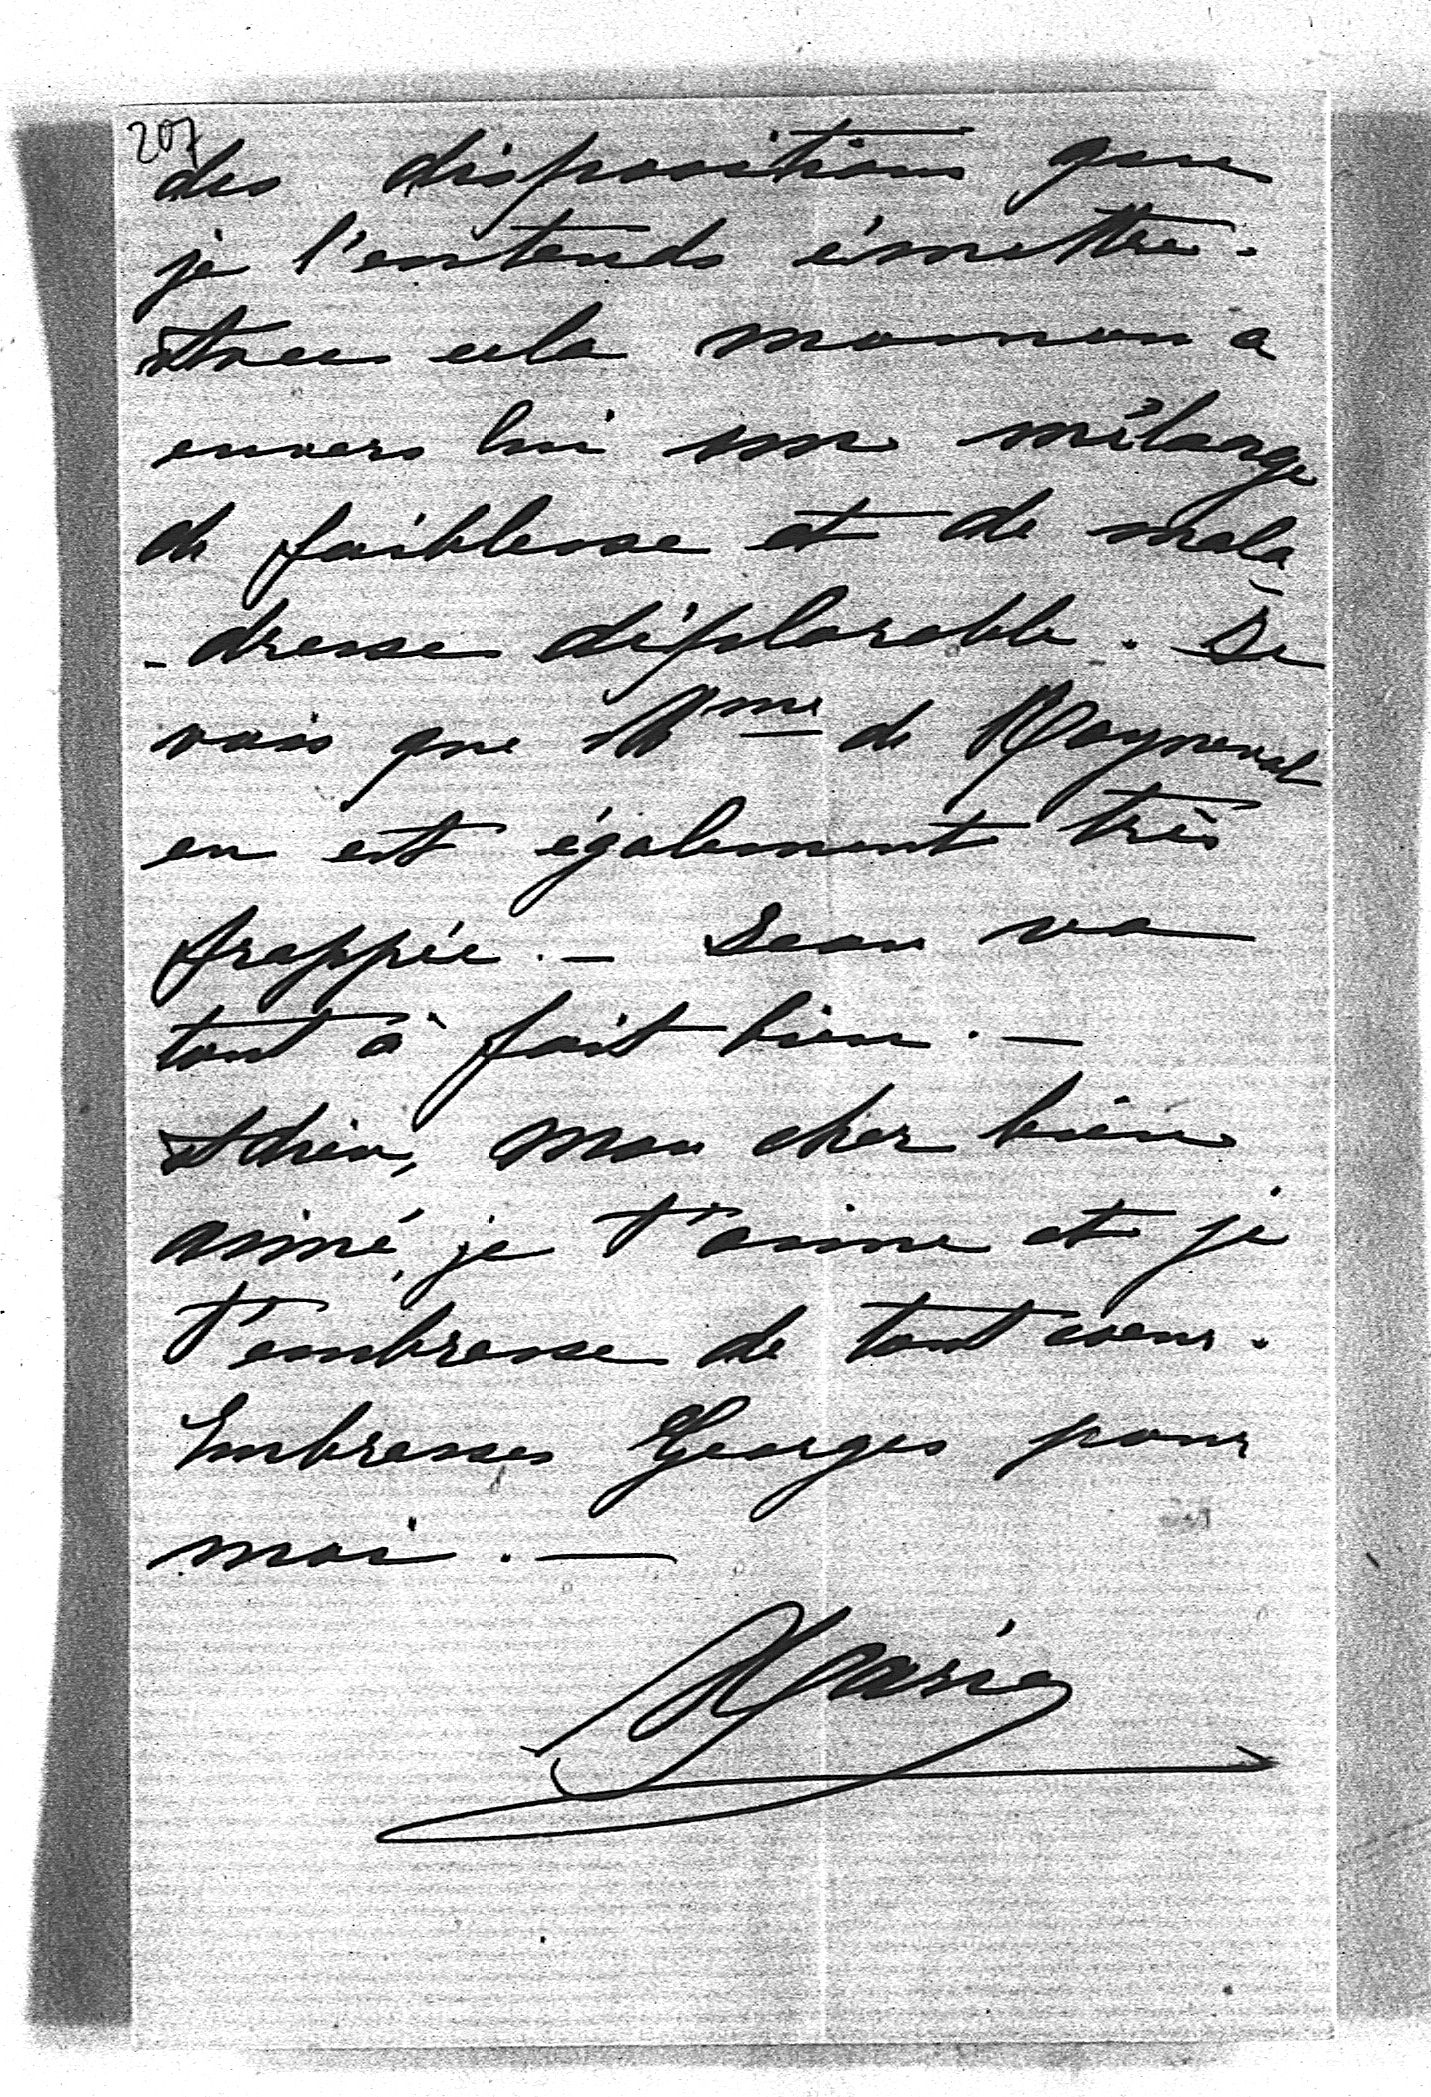 207
des dispositions que
je l'entends émettre.
Avec cela maman a
envers lui un mélange
de faiblesse et de mala
-dresse déplorable. Je
vois que Mme de Raynenal
en est également très
frappée. — Jean va
tout à fait bien. —
Adieu, mon cher bien
aimé, je t'aime et je
t'embrasse de tout coeur.
Embrasses Georges pour
moi. —
Marie